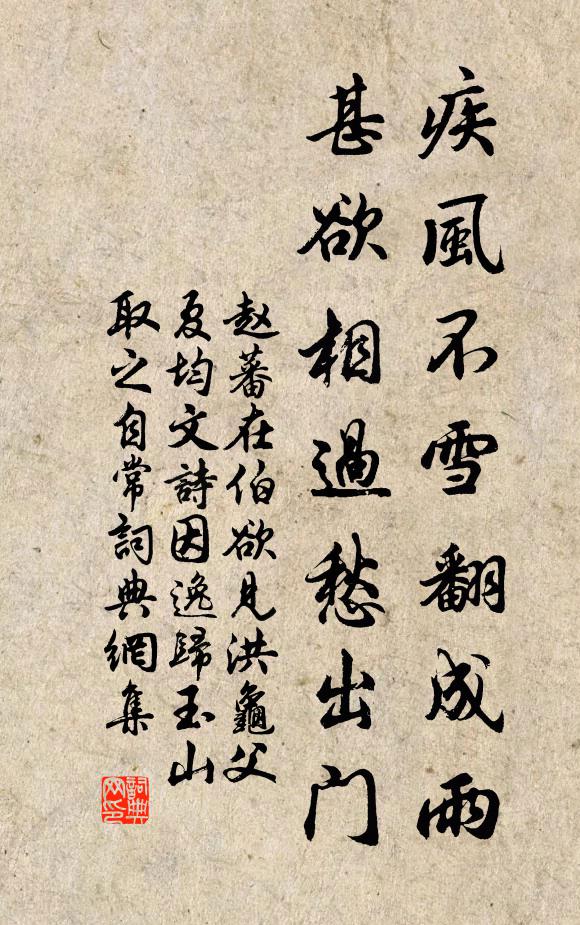 疾風不雪翻成雨
甚欲相過愁出門
赵蕃在伯欲見洪龜父
夏均文詩因逸歸玉山
取之自常詞典網集
詞典网印